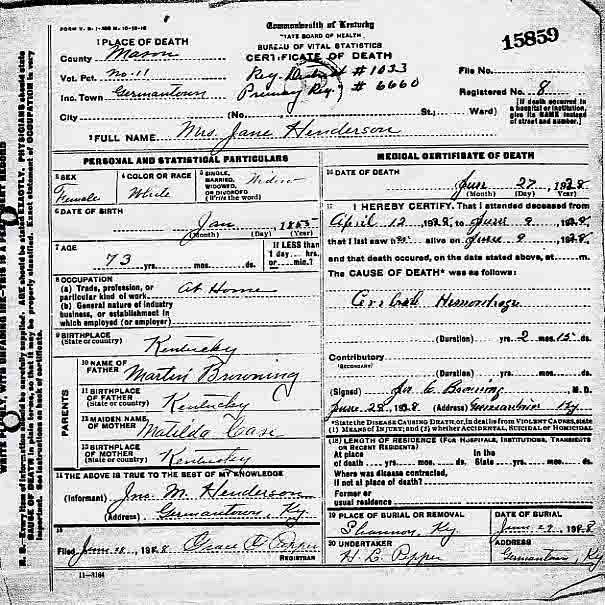 FORM V. S. 1-
Commonwealth of Kentucky
STATE BOARD OF HEALTH
BUREAU OF VITAL STATISTICS
CERTIFICATE OF DEATH
15859
1 PLACE OF DEATH
County Mason
Vot. Pct. No. 11
Inc. Town Germantown
City
Reg District # 1033
Primary Reg. # 6660
File No.
Registered No. 8
(No. St.; Ward)
[If death occurred in a hospital or institution, give its NAME instead of street and number.]
2 FULL NAME Mrs. Jane Henderson
PERSONAL AND STATISTICAL PARTICULARS
3 SEX Female
4 COLOR OR RACE White
5 SINGLE, MARRIED, WIDOWED, OR DIVORCED (Write the word) Widow
6 DATE OF BIRTH
Jan
(Month) (Day) (Year)
7 AGE
73 yrs. mos. ds.
If LESS than 1 day hrs. or min.?
8 OCCUPATION
(a) Trade, profession, or particular kind of work At Home
(b) General nature of industry business, or establishment in which employed (or employer)
9 BIRTHPLACE (State or country) Kentucky
PARENTS
10 NAME OF FATHER Martin Browning
11 BIRTHPLACE OF FATHER (State or country) Kentucky
12 MAIDEN NAME OF MOTHER Matilda
13 BIRTHPLACE OF MOTHER (State or country) Kentucky
14 THE ABOVE IS TRUE TO THE BEST OF MY KNOWLEDGE
(Informant) Jno. M. Henderson
(Address) Germantown, Ky
15
Filed June 28, 1928 Grace
REGISTRAR
MEDICAL CERTIFICATE OF DEATH
16 DATE OF DEATH
June 27, 1928
(Month) (Day) (Year)
17 I HEREBY CERTIFY, That I attended deceased from
April 12, 1928, to June 9, 1928,
that I last saw h alive on June 9, 1928,
and that death occured, on the date stated above, at m.
The CAUSE OF DEATH* was as follows:
Cerebral Hemorrhage
(Duration) yrs. 2 mos. 15 ds.
Contributory
(SECONDARY)
(Duration) yrs. mos. ds.
(Signed) C Browning M. D.
June 28, 1928 (Address) Germantown Ky.
*State the DISEASE CAUSING DEATH, or, in deaths from VIOLENT CAUSES, state (1) MEANS OF INJURY; and (2) whether ACCIDENTAL, SUICIDAL or HOMICIDAL
18 LENGTH OF RESIDENCE (FOR HOSPITALS, INSTITUTIONS, TRANSIENTS OR RECENT RESIDENTS)
At place of death yrs. mos. ds. In the State yrs. mos. ds.
Where was disease contracted, if not at place of death?
Former or usual residence
19 PLACE OF BURIAL OR REMOVAL Shannon, Ky
DATE OF BURIAL June 29, 1928
20 UNDERTAKER H. L. Pepper
ADDRESS Germantown, Ky
11-3184